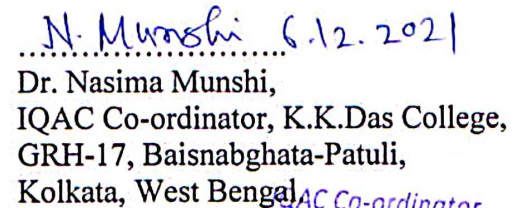 N. Munshi 6.12.2021
Dr. Nasima Munshi,
IQAC Co-ordinator, K.K.Das College,
GRH-17, Baisnabghata-Patuli,
Kolkata, West Bengal.
IQAC Co-ordinator